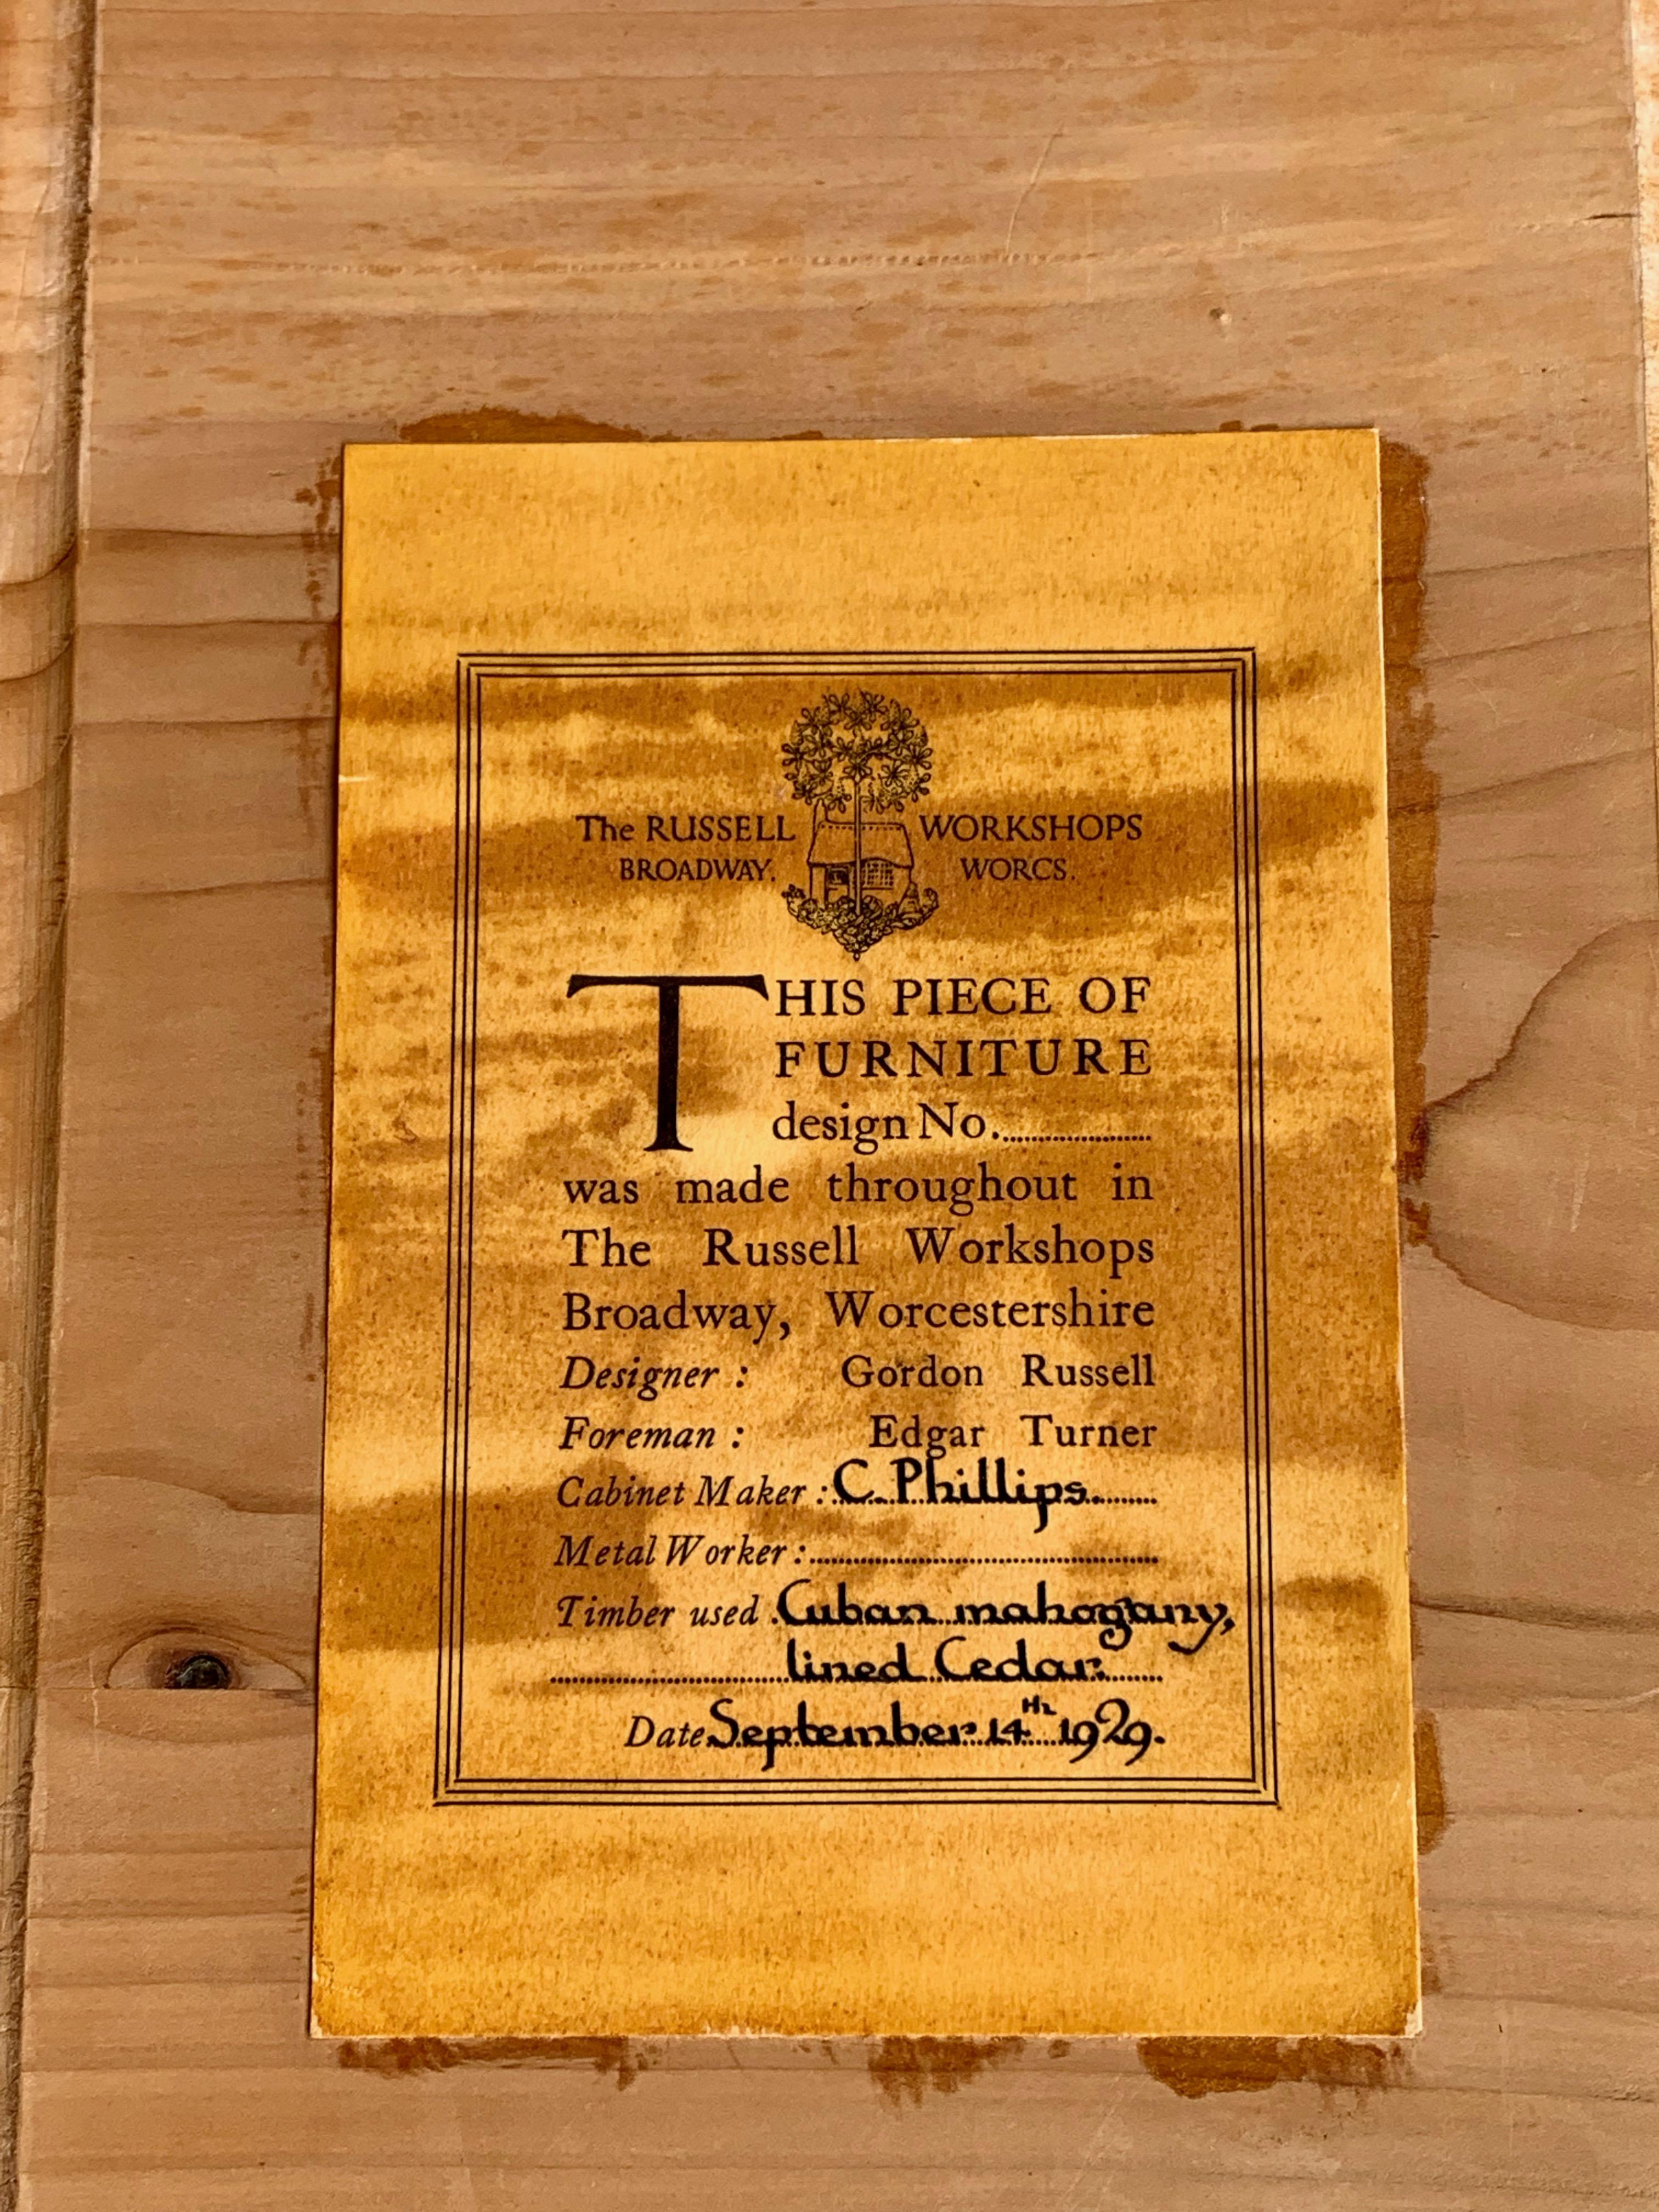 The RUSSELL WORKSHOPS
BROADWAY. WORCS.
THIS PIECE OF
FURNITURE
design No.
was made throughout in
The Russell Workshops
Broadway, Worcestershire
Designer : Gordon Russell
Foreman : Edgar Turner
Cabinet Maker : C. Phillips.
Metal Worker :
Timber used . Cuban mahogany,
lined Cedar.
Date September 14th 1929.